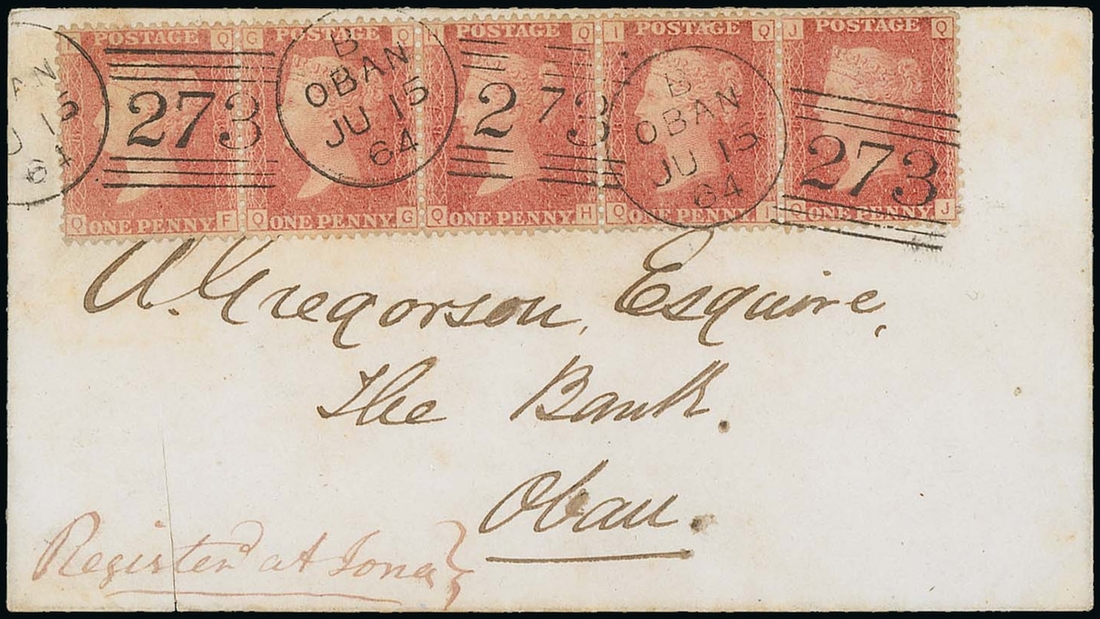 F POSTAGE Q G POSTAGE Q H POSTAGE Q I POSTAGE Q J POSTAGE Q
AN
U 15
64
273
B
OBAN
JU 15
64
273
B
OBAN
JU 15
64
273
Q ONE PENNY F Q ONE PENNY G Q ONE PENNY H Q ONE PENNY I Q ONE PENNY J
A. Gregorson, Esquire,
The Bank.
Oban.
Registered at Iona